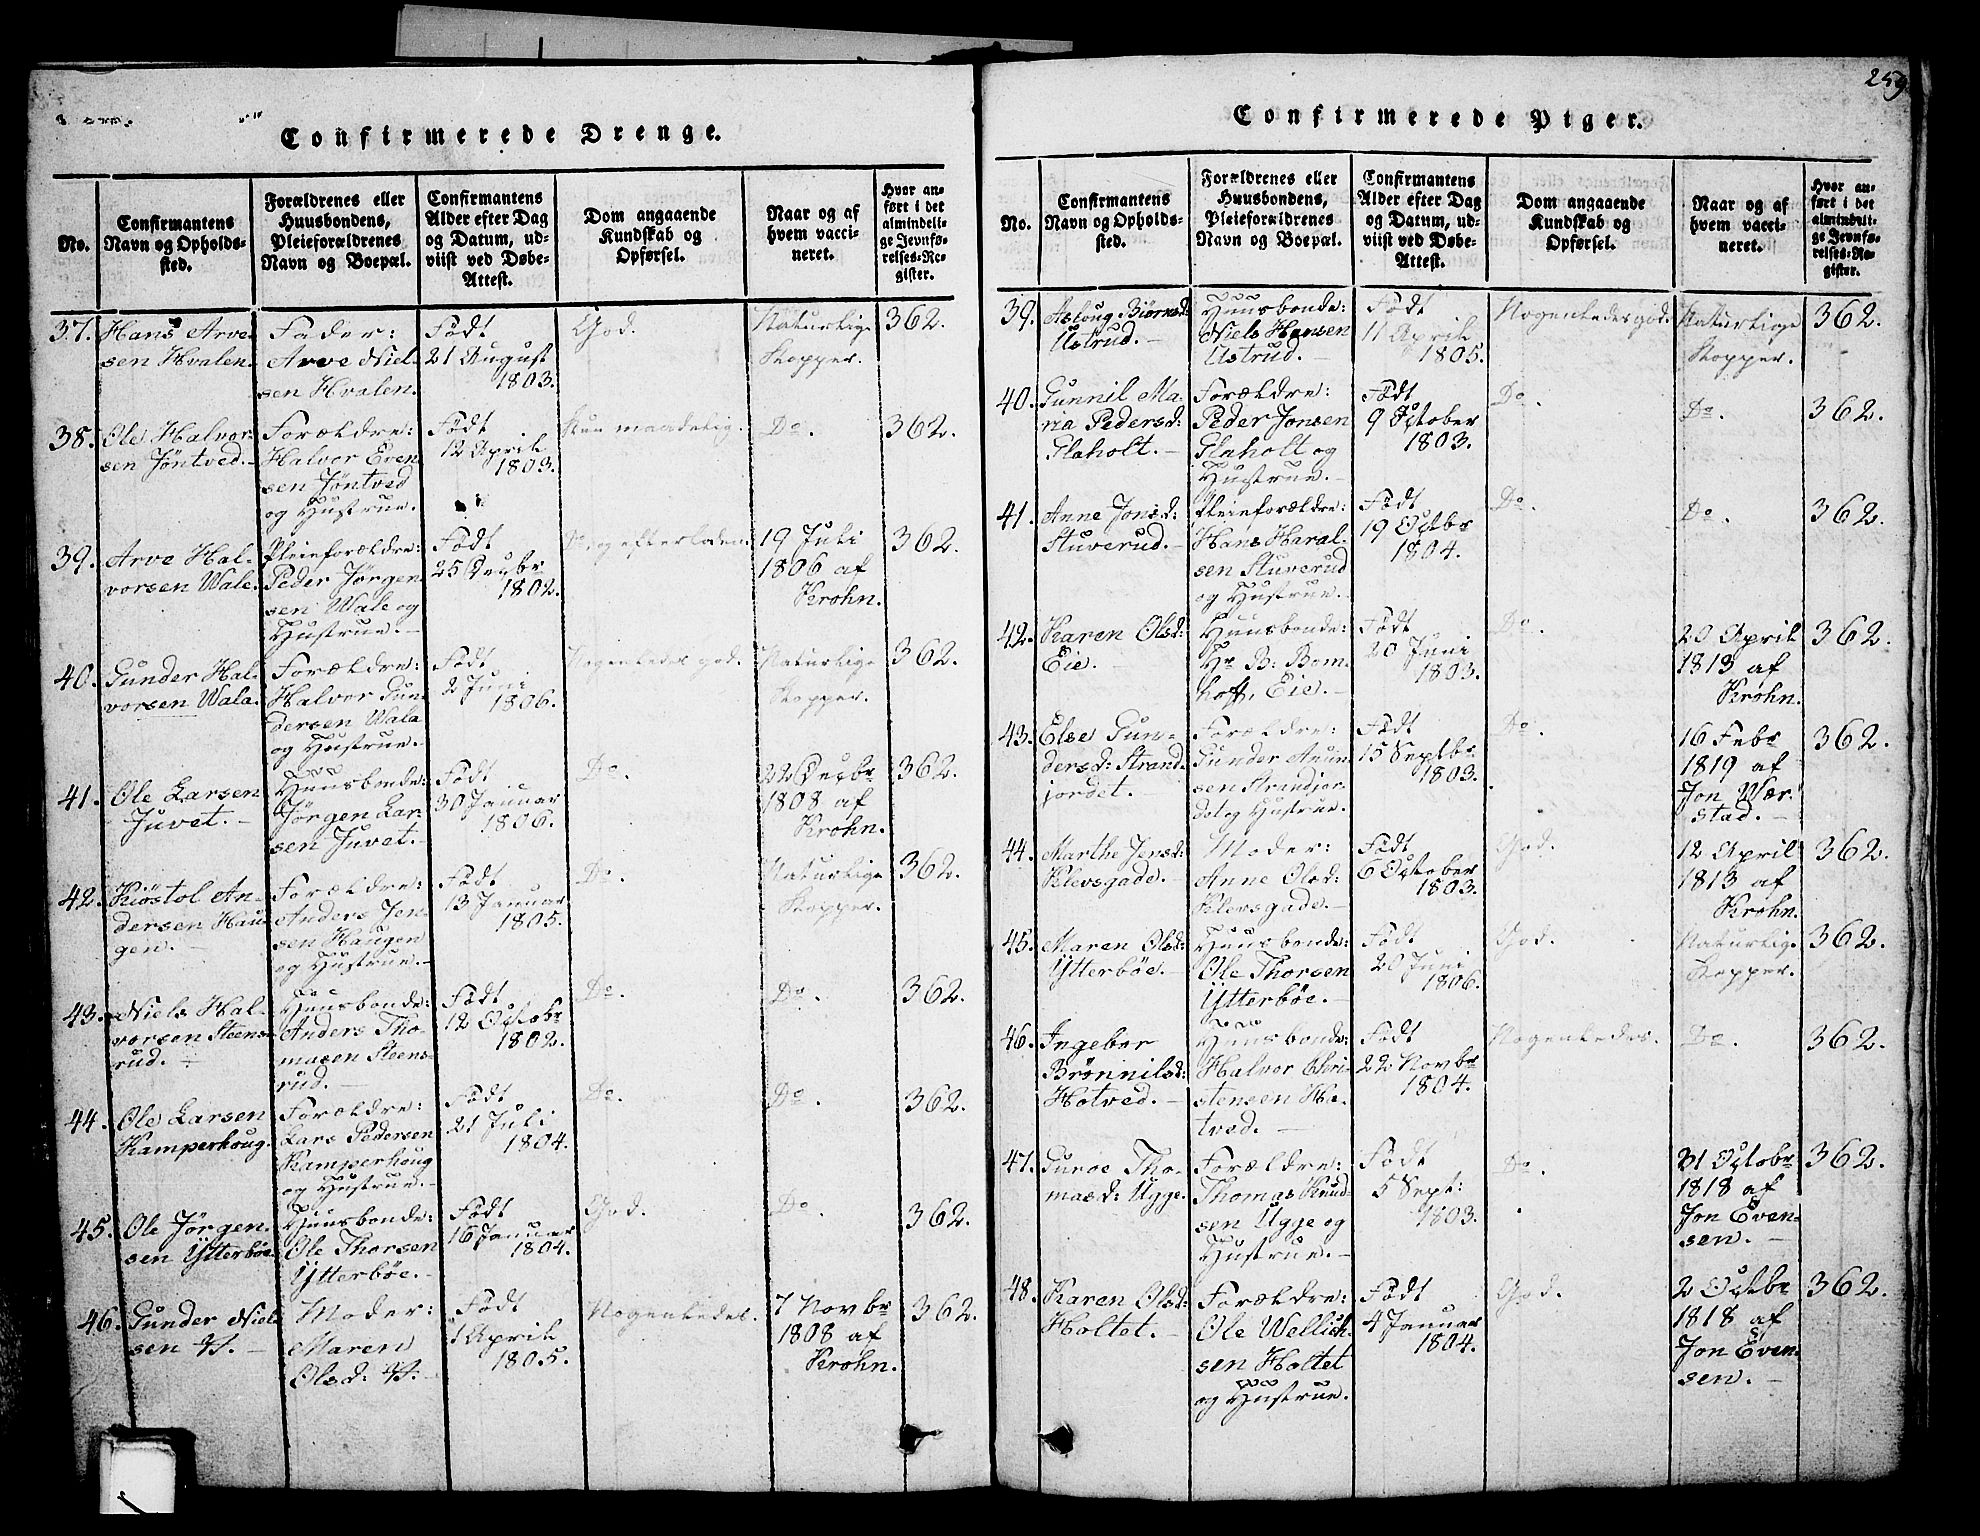 259
Confirmerede Drenge.
No.
Confirmantens
Navn og Opholds-
sted.
Forældrenes eller
Huusbondens,
Pleieforældrenes
Navn og Boepæl.
Confirmantens
Alder efter Dag
og Datum, ud-
viist ved Døbe-
Attest.
Dom angaaende
Kundskab og
Opførsel.
Naar og af
hvem vacci-
neret.
Hvor an-
ført i det
almindeli-
ge Jevnfø-
relses-Re-
gister.
37.
Hans Arve-
sen Hvalen.
Fader:
Arve Niel-
sen Hvalen.
Født
21 August
1803.
God.
Naturlige
Kopper.
362.
38.
Ole Halvor-
sen Jøntved.
Forældre:
Halvor Even-
sen Jøntved
og Hustrue.
Født
12 April
1803.
Kun maadelig.
Do.
362.
39.
Arve Hal-
vorsen Wale.
Pleieforældre:
Peder Jørgen-
sen Wale og
Hustrue.
Født
25 Decbr
1802.
19 Juli
1806 af
Krohn.
362.
40.
Gunder Hal-
vorsen Wala.
Forældre:
Halvor Gun-
dersen Wala
og Hustrue.
Født
2 Juni
1806.
Nogenledes god.
Naturlige
Kopper.
362.
41.
Ole Larsen
Juvet.
Huusbonde:
Jørgen Lar-
sen Juvet.
Født
30 Januar
1806.
Do.
22 Decbr
1808 af
Krohn.
362.
42.
Kiøstol An-
dersen Hau-
gen.
Forældre:
Anders Jen-
sen Haugen
og Hustrue.
Født
13 Januar
1805.
Do.
Naturlige
Kopper.
362.
43.
Niels Hal-
vorsen Steens-
rud.
Huusbonde:
Anders Tho-
masen Steens-
rud.
Født
12 Octobr
1802.
Do.
Do.
362.
44.
Ole Larsen
Kamperhoug.
Forældre:
Lars Pedersen
Kamperhoug
og Hustrue.
Født
21 Juli
1804.
Do.
Do.
362.
45.
Ole Jørgen-
sen Ytterbøe.
Huusbonde:
Ole Thorsen
Ytterbøe.
Født
16 Januar
1804.
God.
Do.
362.
46.
Gunder Niel-
sen
Moder:
Maren
Olsd:
Født
1 April
1805.
Nogenledes.
7 Novbr
1808 af
Krohn.
362.
Confirmerede Piger.
No.
Confirmantens
Navn og Opholds-
sted.
Forældrenes eller
Huusbondens,
Pleieforældrenes
Navn og Boepæl.
Confirmantens
Alder efter Dag
og Datum, ud-
viist ved Døbe-
Attest.
Dom angaaende
Kundskab og
Opførsel.
Naar og af
hvem vacci-
neret.
Hvor an-
ført i det
almindeli-
ge Jevnfø-
relses-Re-
gister.
39.
Asloug Biørnsd:
Ustrud.
Huusbonde:
Niels Hansen
Ustrud.
Født
11 April
1805.
Nogenledes god.
Naturlige
Kopper.
362.
40.
Gunnil Ma-
ria Pedersd:
Flaholt.
Forældre:
Peder Jonsen
Flaholt og
Hustrue.
Født
9 October
1803.
Do.
Do.
362.
41.
Anne Jonsd:
Stuverud.
Pleieforældre:
Hans Haral-
sen Stuverud
og Hustrue.
Født
19 Octbr
1804.
Do.
Do.
362.
42.
Karen Olsd:
Eie.
Huusbonde:
Hr B: Bom-
hoff, Eie.
Født
20 Juni
1803.
Do.
20 April
1813 af
Krohn.
362.
43.
Else Gun-
dersd: Strand-
jordet.
Forældre:
Gunder Anun-
sen Strandjor-
det og Hustrue.
Født
15 Septbr
1803.
Do.
16 Febr
1819 af
Jon Wær-
stad.
362.
44.
Marthe Jensd:
Klevsgade.
Moder:
Anne Olsd:
Klevsgade.
Født
6 October
1803.
God.
12 April
1813 af
Krohn.
362.
45.
Maren Olsd:
Ytterbøe.
Huusbonde:
Ole Thorsen
Ytterbøe.
Født
20 Juni
1806.
God.
Naturlige
Kopper.
362.
46.
Ingeber
Brønnilsd:
Hotved.
Huusbonde:
Halvor Chri-
stensen Ho-
tved.
Født
22 Novbr
1804.
Nogenledes.
Do.
362.
47.
Guroe Tho-
masd: Ugge.
Forældre:
Thomas Knud-
sen Ugge og
Hustrue.
Født
5 Sept:
1803.
Do.
31 Octobr
1818 af
Jon Even-
sen.
362.
48.
Karen Olsd:
Holtet.
Forældre:
Ole Wellich-
sen Holtet
og Hustrue.
Født
4 Januar
1804.
God.
2 Octbr
1818 af
Jon Even-
sen.
362.